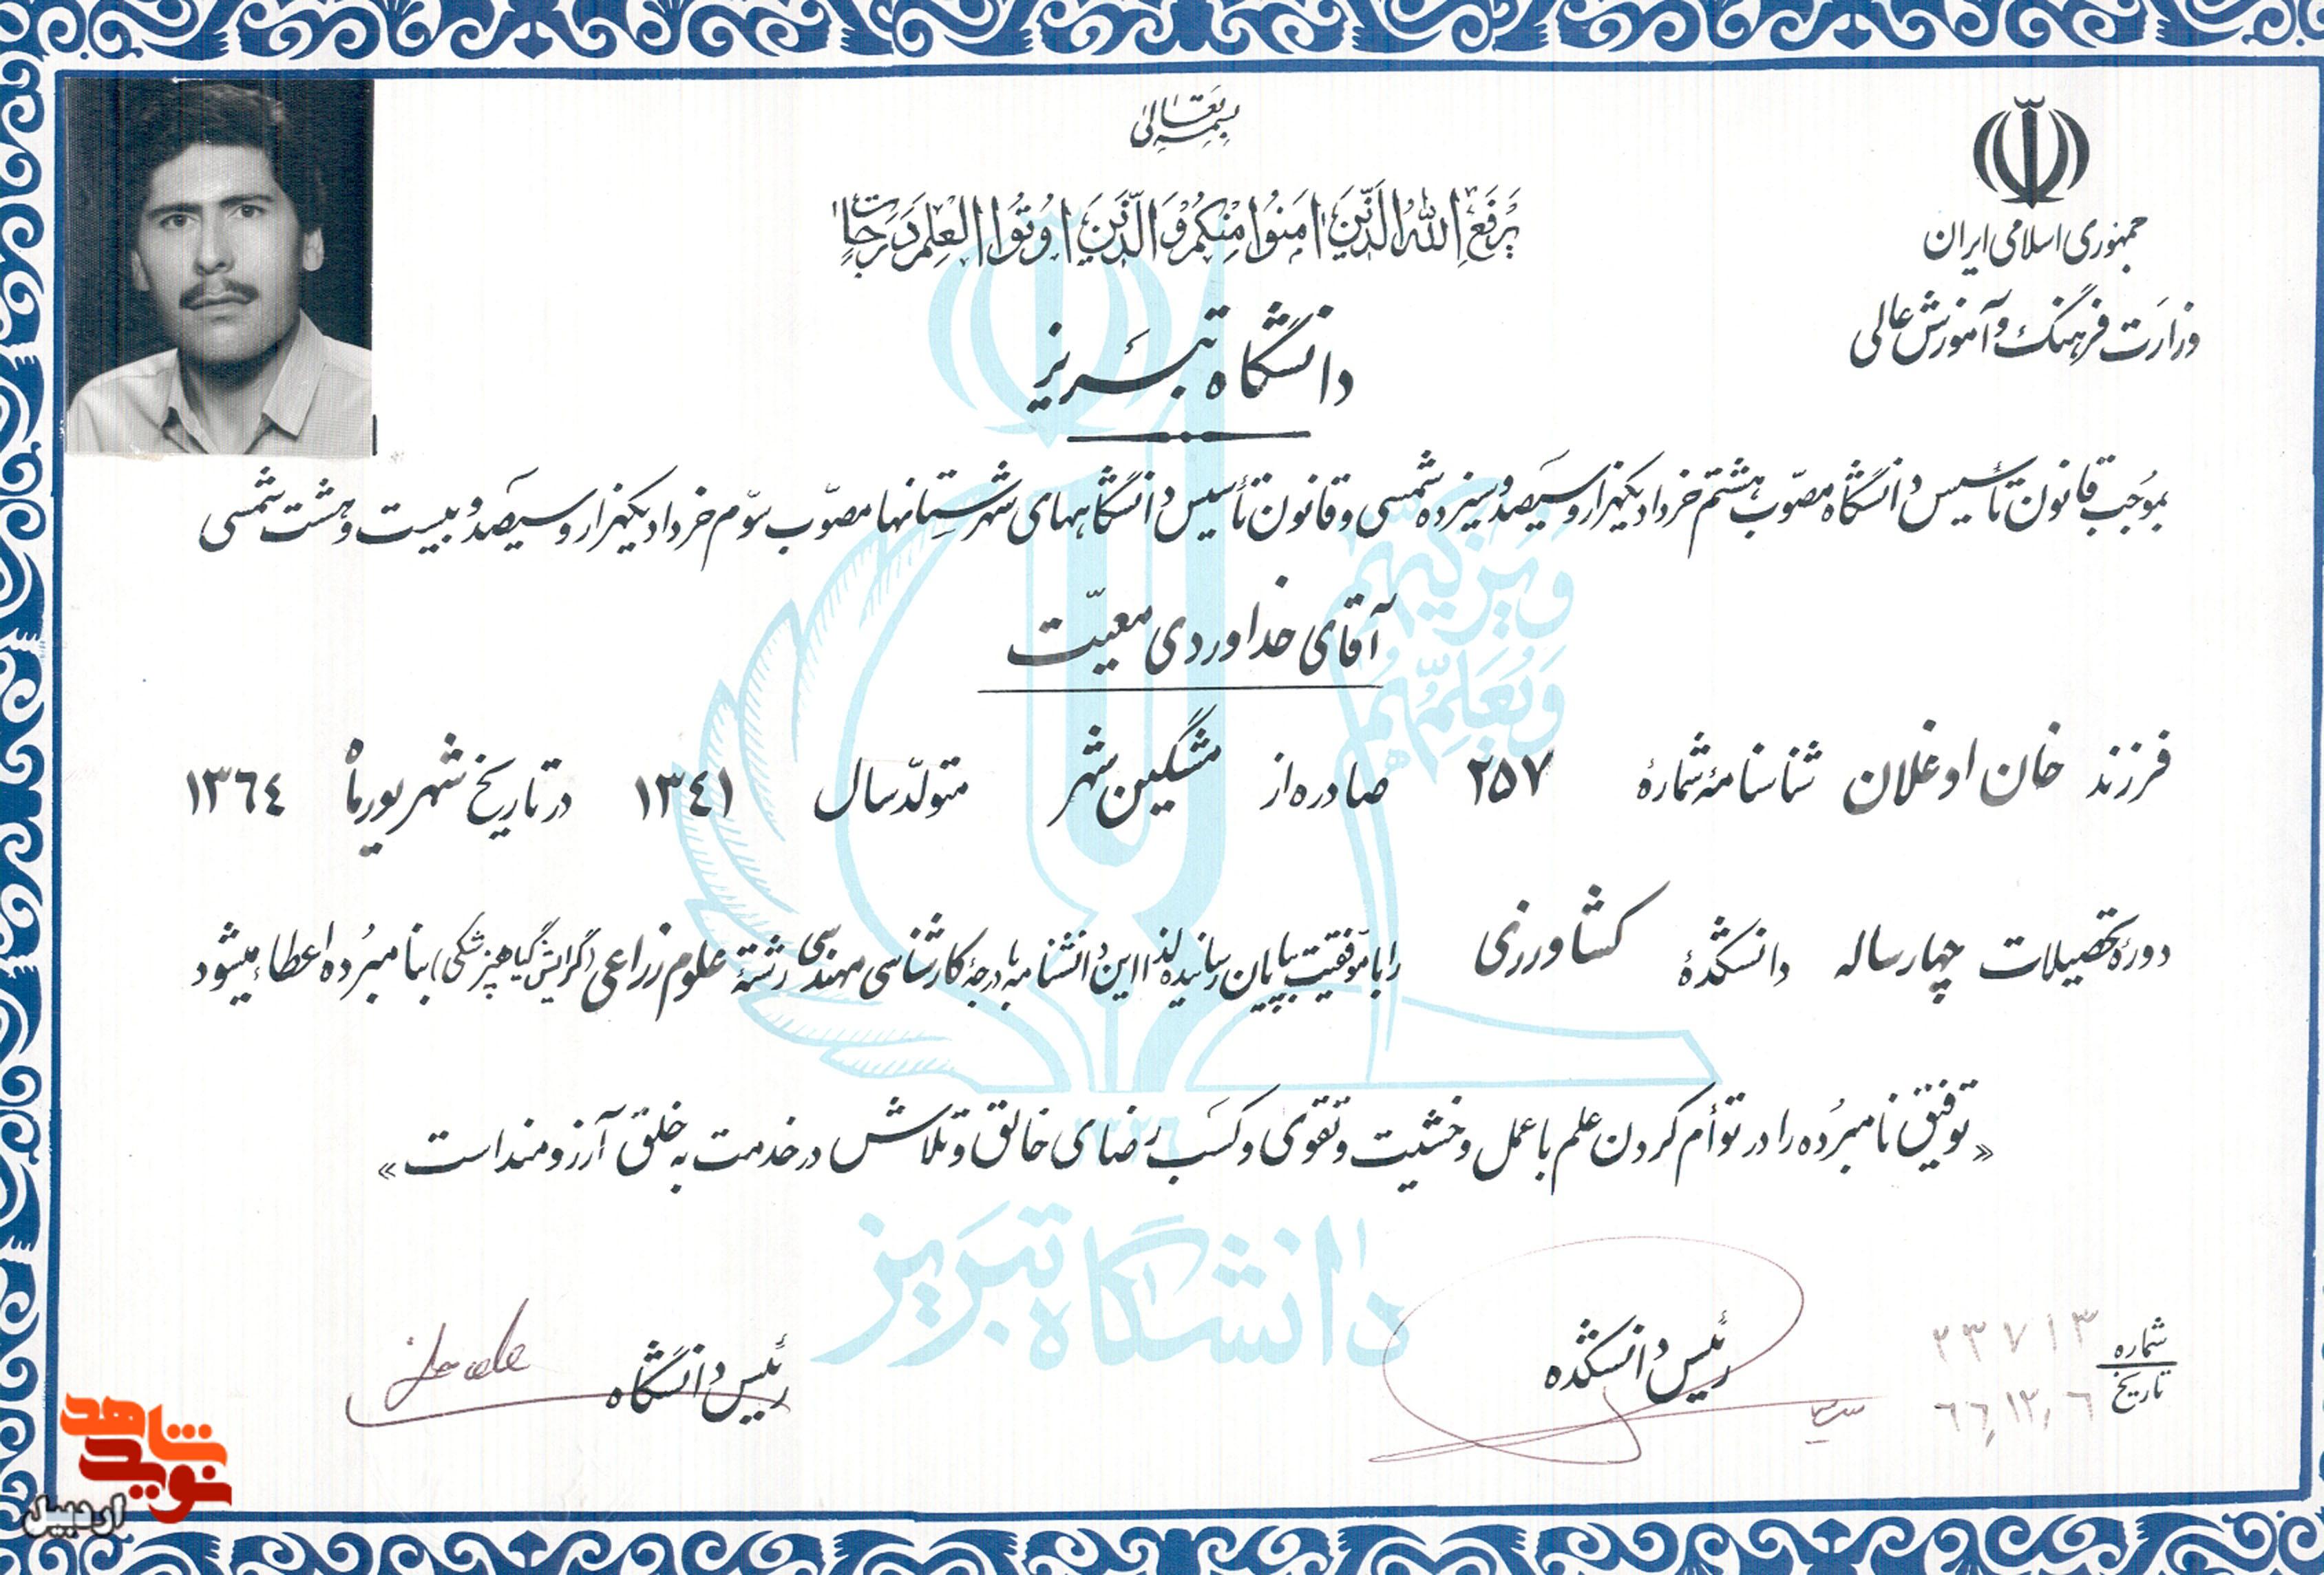 بسمه تعالی
یَرفَعِ اللهُ الَّذینَ امَنُوا مِنْکُمْ وَ الَّذینَ اوُتُوا الْعِلمَ دَرَجات
جمهوری اسلامی ایران
وزارت فرهنگ و آموزش عالی
دانشگاه تبریز
بموجب قانون تأسیس دانشگاه مصوّب هشتم خرداد یکهزار و سیصد و سیزده شمسی و قانون تأسیس دانشگاههای شهرستانها مصوّب سوّم خرداد یکهزار و سیصد و بیست و هشت شمسی
آقای خداوردی معیّت
فرزند خان اوغلان شناسنامهٔ شمارهٔ ۲۵۷ صادره از مشگین شهر متولّد سال ۱۳٤۱ در تاریخ شهریورماه ۱۳٦٤
دورهٔ تحصیلات چهارساله دانشکدهٔ کشاورزی را با موّفقیت بپایان رسانیده لذا این دانشنامه با درجهٔ کارشناسی مهندسی رشتهٔ علوم زراعی (گرایش گیاهپزشکی) بنامبُرده اعطاء میشود
«توفیق نامبُرده را در توأم کردن علم با عمل و خشیت و تقوی و کسب رضای خالق و تلاش در خدمت به خلق آرزومند است»
وَ یُزَکّیهِم
وَ یُعَلِّمُهُم
دانشگاه تبریز
رئیس دانشگاه
رئیس دانشکده
شماره ۲۳۷۱۳
تاریخ ٦٦٫۱۲٫٦
نوید شاهد
اردبیل